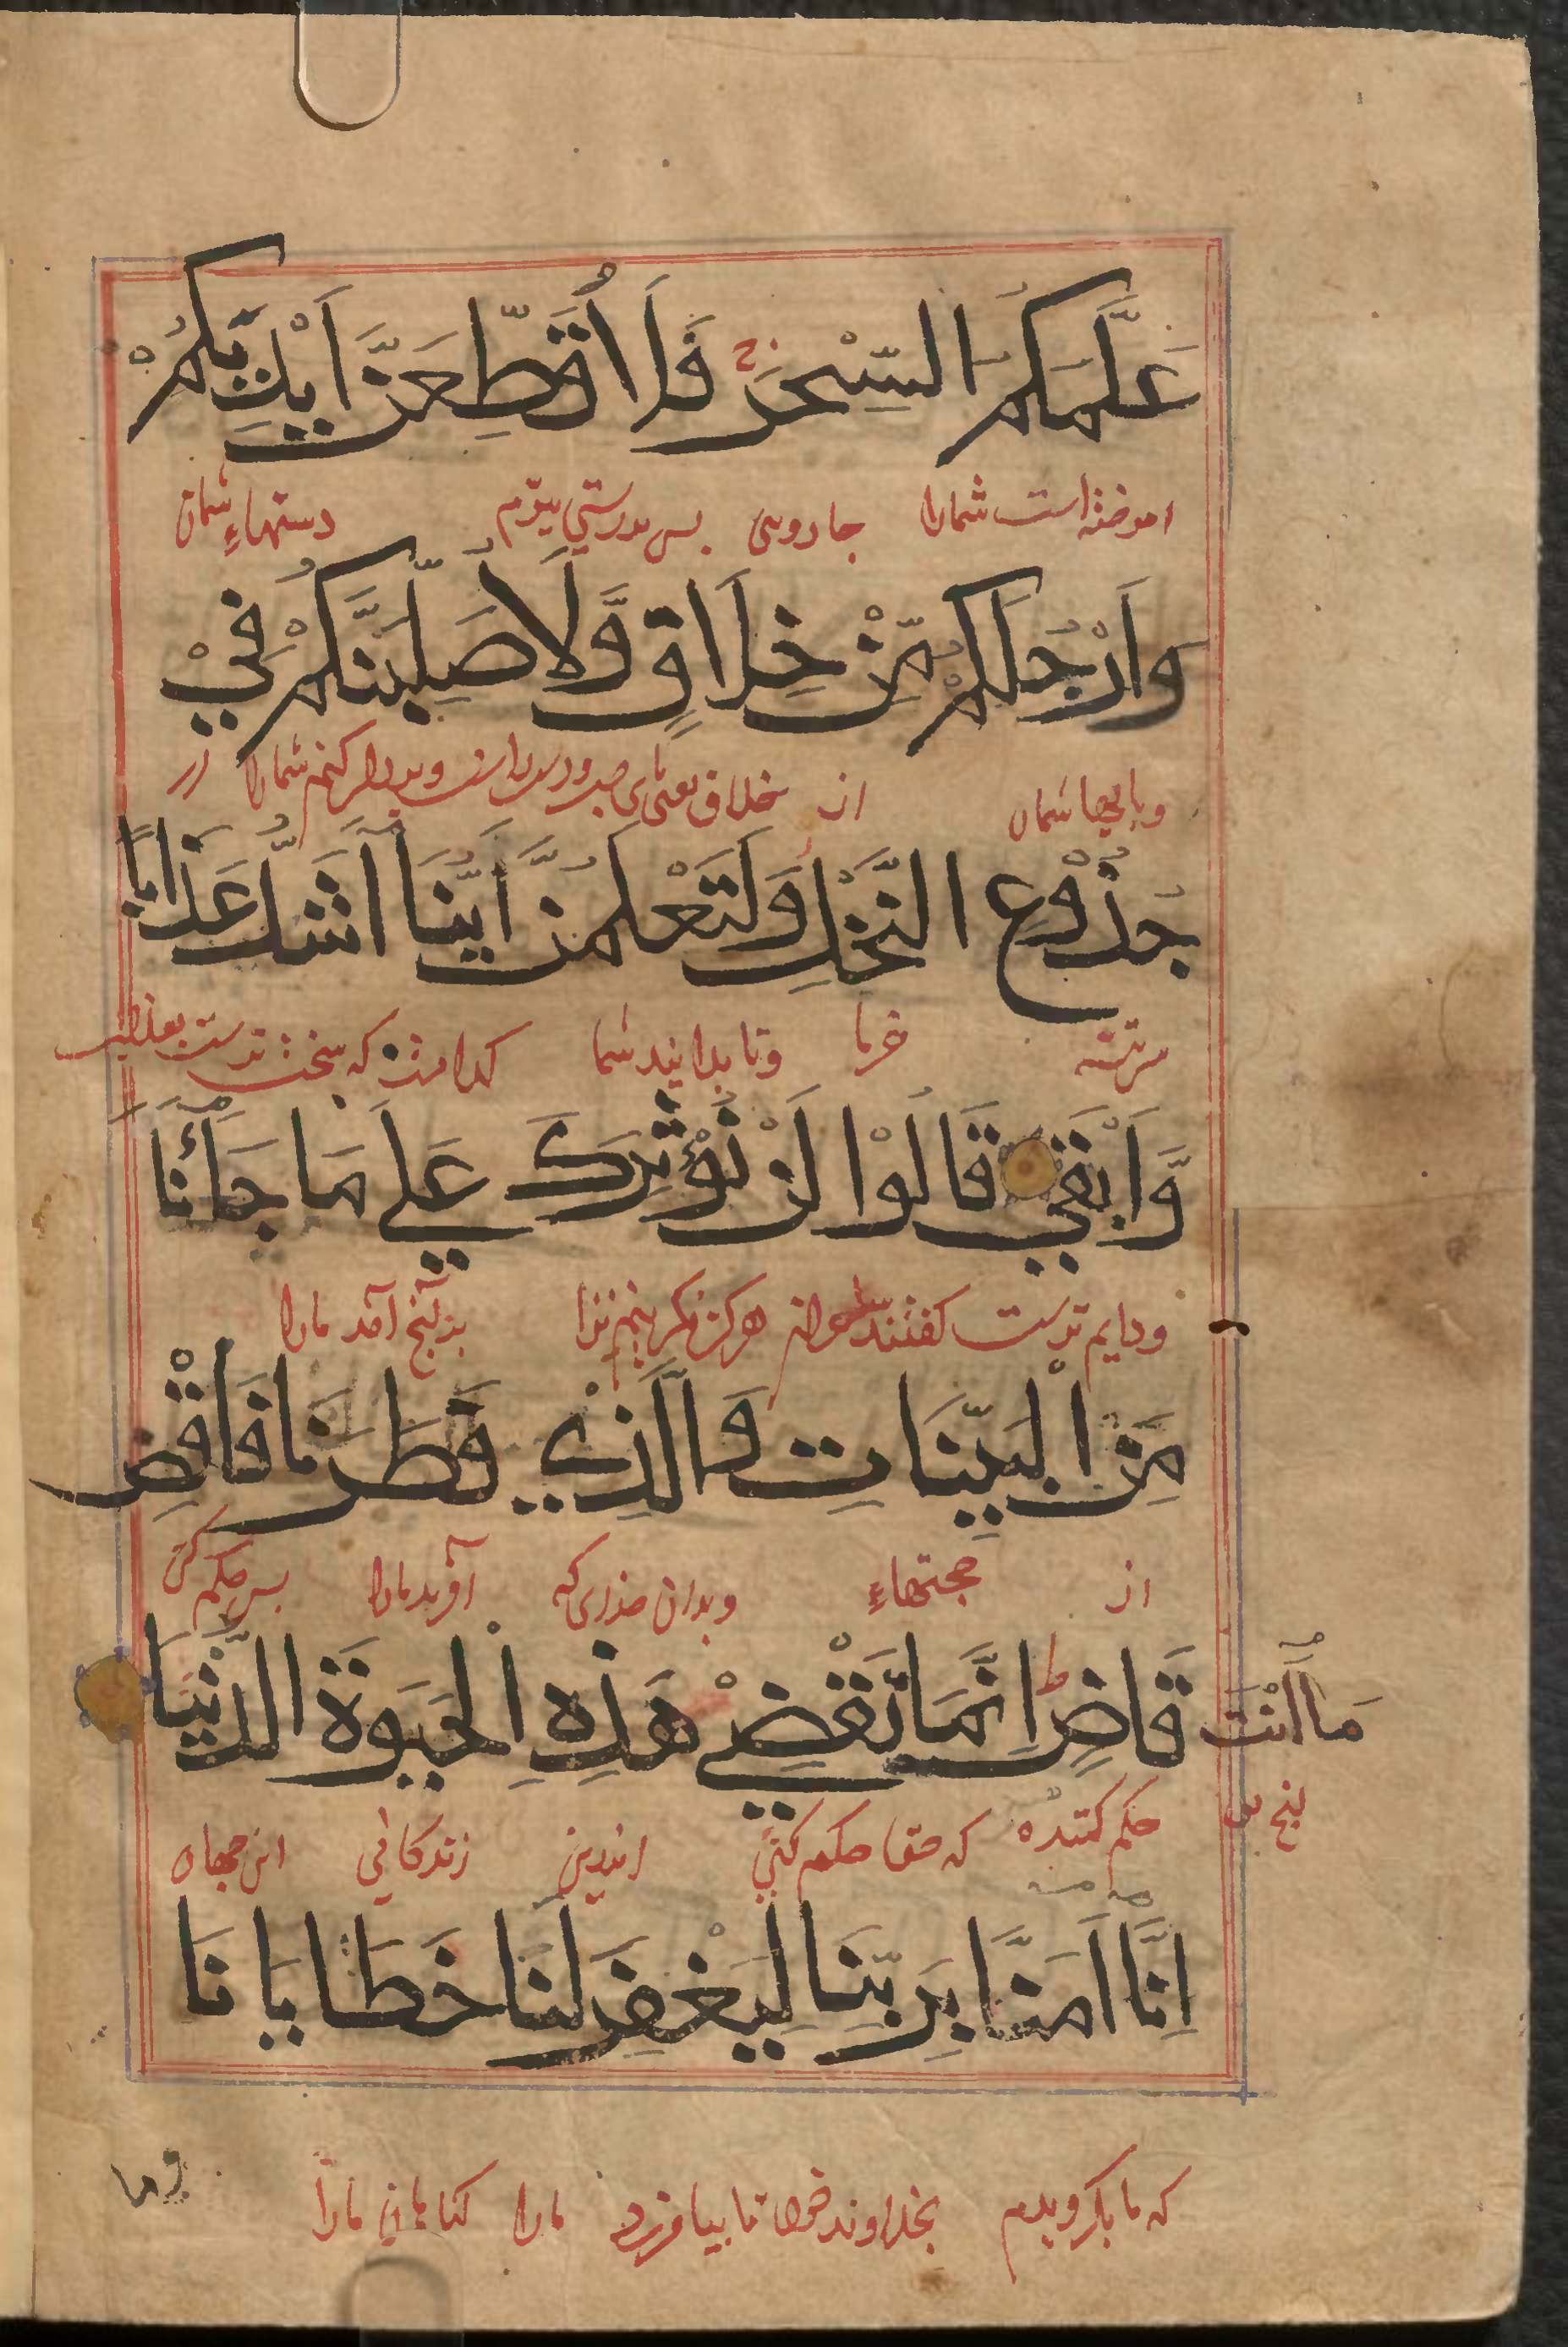 عَلَّمَكُمُ السِّحْرَ ج فَلَاُقَطِّعَنَّ اَيْدِيَكُمْ
اموخته است شمارا جادوی بس بدرستی ببرم دستهاء شمان
وَاَرْجُلَكُمْ مِّنْ خِلَافٍ وَّلَاُصَلِّبَنَّكُمْ فِيْ
وبایها شمان از خلاف یعنی بای جب ودست راست وبردار کنم شمارا در
جُذُوْعِ النَّخْلِ وَلَتَعْلَمُنَّ اَيُّنَا اَشَدُّ عَذَابًا
خرما وتا بدانید شما کدامند که سخت ترست بعذاب
وَّاَبْقٰي قَالُوْا لَنْ نُّؤْثِرَكَ عَلٰي مَا جَآءَنَا
ودایم ترست کفتند هرکز نکزینیم ترا بدآنج آمد مارا
مِنَ الْبَيِّنَاتِ وَالَّذِيْ فَطَرَنَا فَاقْضِ
از حجتهاء وبدان خدای که آفرید مارا بس حکم کن
مَآ اَنْتَ قَاضٍ ط اِنَّمَا تَقْضِيْ هٰذِهِ الْحَيٰوةَ الدُّنْيَا
حکم کننده که حقا حکم کنی اندرین زندکانی این جهان
اِنَّآ اٰمَنَّا بِرَبِّنَا لِيَغْفِرَ لَنَا خَطَايَانَا
که ما بکرویدیم بخداوند خود تا بیامرزد مارا کناهان مارا
وما